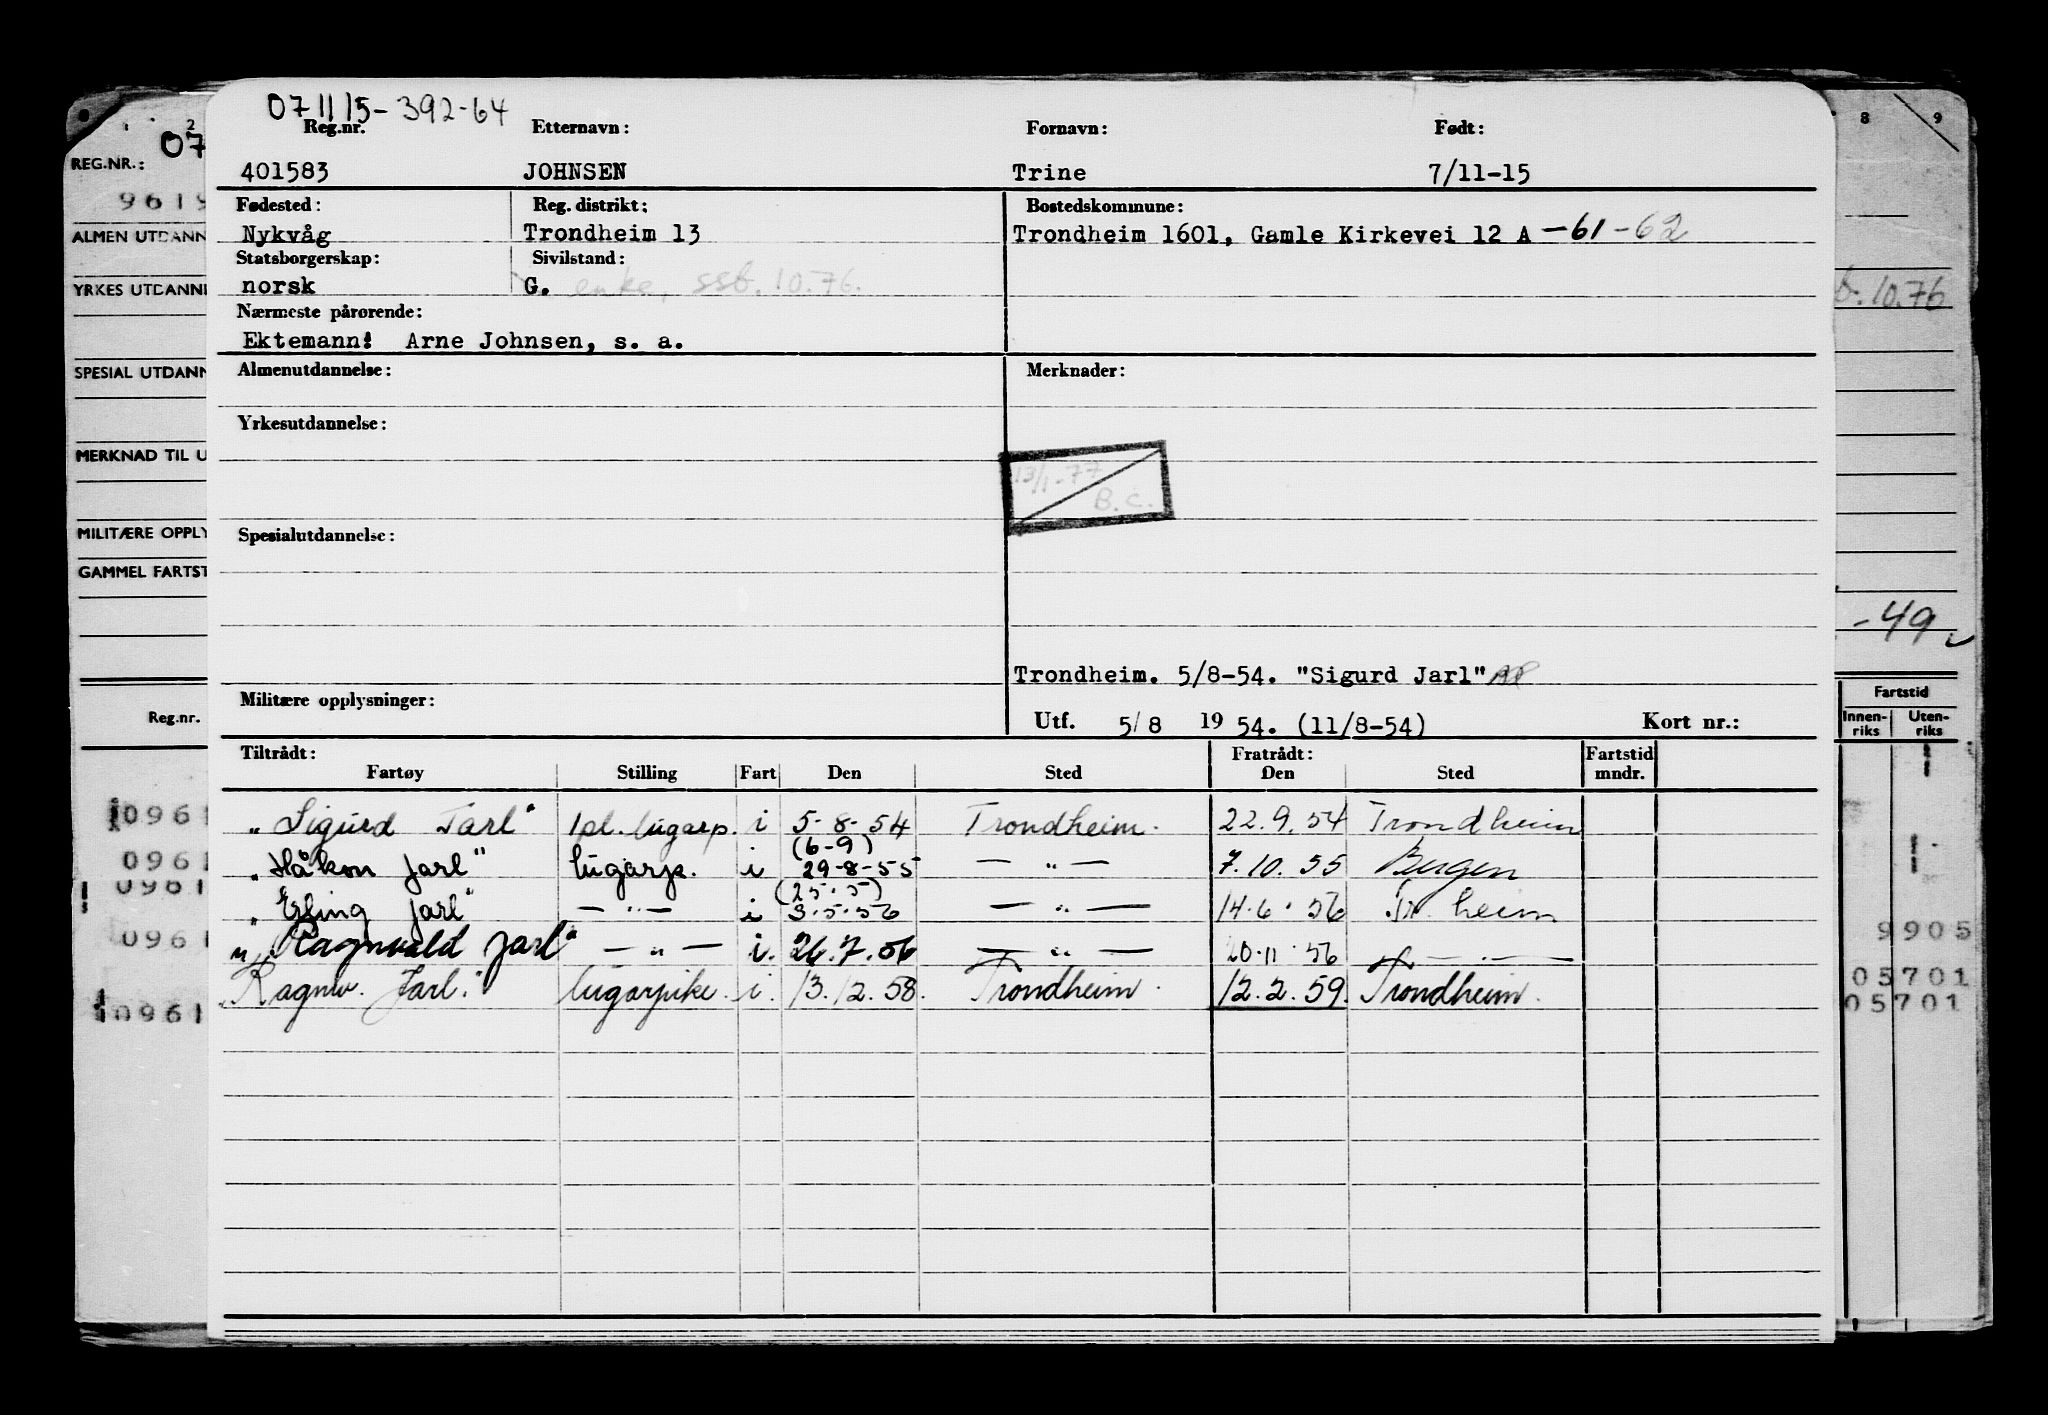 071115-392-64
Reg.nr. Etternavn: Fornavn: Født:
401583 JOHNSEN Trine 7/11-15
Fødested: Reg. distrikt: Bostedskommune:
Nykvåg Trondheim 13 Trondheim 1601, Gamle Kirkevei 12 A -61-62
Statsborgerskap: Sivilstand:
norsk G. enke, ssb. 10.76.
Nærmeste pårørende:
Ektemann: Arne Johnsen, s. a.
Almenutdannelse: Merknader:
Yrkesutdannelse:
13/1-77
B.C.
Spesialutdannelse:
Trondheim. 5/8-54. "Sigurd Jarl"
Militære opplysninger:
Utf. 5/8 1954. (11/8-54) Kort nr.:
Tiltrådt: Fratrådt: Fartstid
Fartøy Stilling Fart Den Sted Den Sted mndr.
"Sigurd Jarl" 1pl. lugarp. i 5-8-54 Trondheim. 22.9.54 Trondheim
(6-9)
"Håkon Jarl" lugarp. i 29-8-55 — " — 7.10.55 Bergen
(25.5)
"Erling Jarl" — " — i 3.5.56 — " — 14.6.56 Tr.heim
"Ragnvald Jarl" — " — i. 26.7.56 — " — 20.11.56 — " —
"Ragnv. Jarl." lugarpike. i. 13.12.58. Trondheim. 12.2.59. Trondheim.
2
07
REG.NR.:
9619
ALMEN UTDANN
YRKES UTDANNE
SPESIAL UTDANN
MERKNAD TIL U
MILITÆRE OPPLY
GAMMEL FARTST
Reg.nr.
0961
0961
0961
0961
0961
8 9
b. 10.76
-49
Fartstid
Innen-
riks Uten-
riks
9905
05701
05701